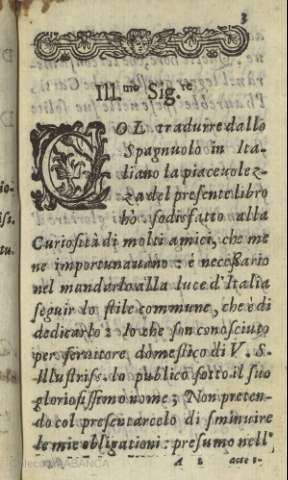 3
Ill.mo Sig.re
COL tradurre dallo
Spagnuolo in Ita-
liano la piaceuolez-
za del presente libro
hò sodisfatto alla
Curiosità di molti amici, che me
ne importunauano: è necessario
nel mandarlo alla luce d'Italia
seguir lo stile commune, che è di
dedicarlo: Io che son conosciuto
per seruitore domestico di V. S.
Illustriss. lo publico sotto il suo
gloriosissimo nome; Non preten-
do col presentarcelo di sminuire
le mie obligationi: presumo nell'
A 2 acce-